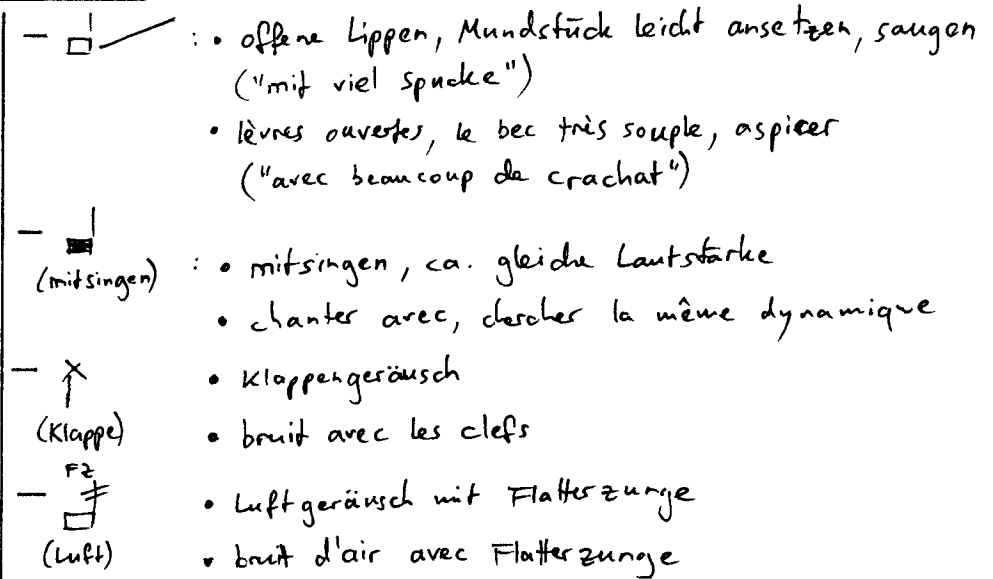 — : • offene Lippen, Mundstück leicht ansetzen, saugen
("mit viel Spucke")
• lèvres ouvertes, le bec très souple, aspirer
("avec beaucoup de crachat")
— (mitsingen) : • mitsingen, ca. gleiche Lautstärke
• chanter avec, chercher la même dynamique
— (Klappe) • Klappengeräusch
• bruit avec les clefs
— FZ (Luft) • Luftgeräusch mit Flatterzunge
• bruit d'air avec Flatterzunge